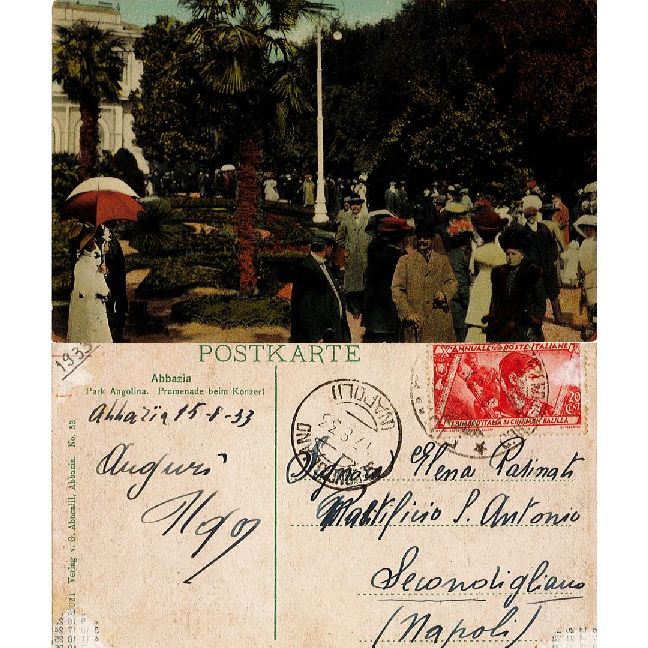 1933
POSTKARTE
Abbazia
Park Angolina. Promenade beim Konzert
Abbazia 15-8-33
Auguri
Ugo
Verlag v. S. Abucafil, Abbazia. No. 58
ANNUALE POSTE ITALIANE
20
SI CHIAMAN BALILLA
(NAPOLI)
Signora Elena Patinati
Pastificio S. Antonio
Secondigliano
(Napoli)